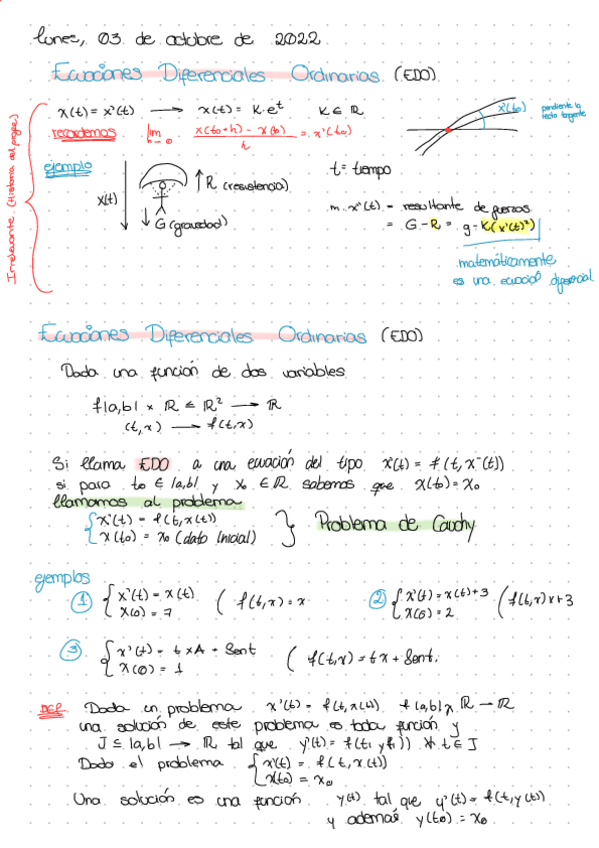 lunes, 03 de octubre de 2022
Ecuaciones Diferenciales Ordinarias (EDO)
Irrelevante (Historia del progre)
x(t) = x'(t) → x(t) = K·e^t K ∈ ℝ
recordemos lim h→0 x(t0+h) - x(t0) / h = x'(t0)
x'(t0) pendiente la recta tangente
ejemplo
x(t)
↑ R (resistencia)
↓ G (gravedad)
t = tiempo
m·x''(t) = resultante de fuerzas
= G - R = g - K(x'(t)²)
matemáticamente
es una ecuació diferencial
Ecuaciones Diferenciales Ordinarias (EDO)
Dada una función de dos variables
f ]a,b[ × ℝ ⊆ ℝ² → ℝ
(t,x) → f(t,x)
Si llama EDO a una ecuación del tipo x'(t) = f(t, x(t))
si para t0 ∈ ]a,b[ y x0 ∈ ℝ sabemos que x(t0) = x0
llamamos al problema
{ x'(t) = f(t,x(t))
x(t0) = x0 (dato inicial) } Problema de Cauchy
ejemplos
① { x'(t) = x(t) x(0) = 7 ( f(t,x) = x
② { x'(t) = x(t)+3 x(0) = 2 ( f(t,x) x+3
③ { x'(t) = t x(t) + Sent x(0) = 1 ( f(t,x) = tx + Sent.
DEF Dado un problema x'(t) = f(t,x(t)) f ]a,b[ × ℝ → ℝ
una solución de este problema es toda función y
J ⊆ ]a,b[ → ℝ tal que y'(t) = f(t, y(t)) ∀ t ∈ J
Dado el problema { x'(t) = f(t,x(t))
x(t0) = x0
Una solución es una función y(t) tal que y'(t) = f(t,y(t))
y además y(t0) = x0